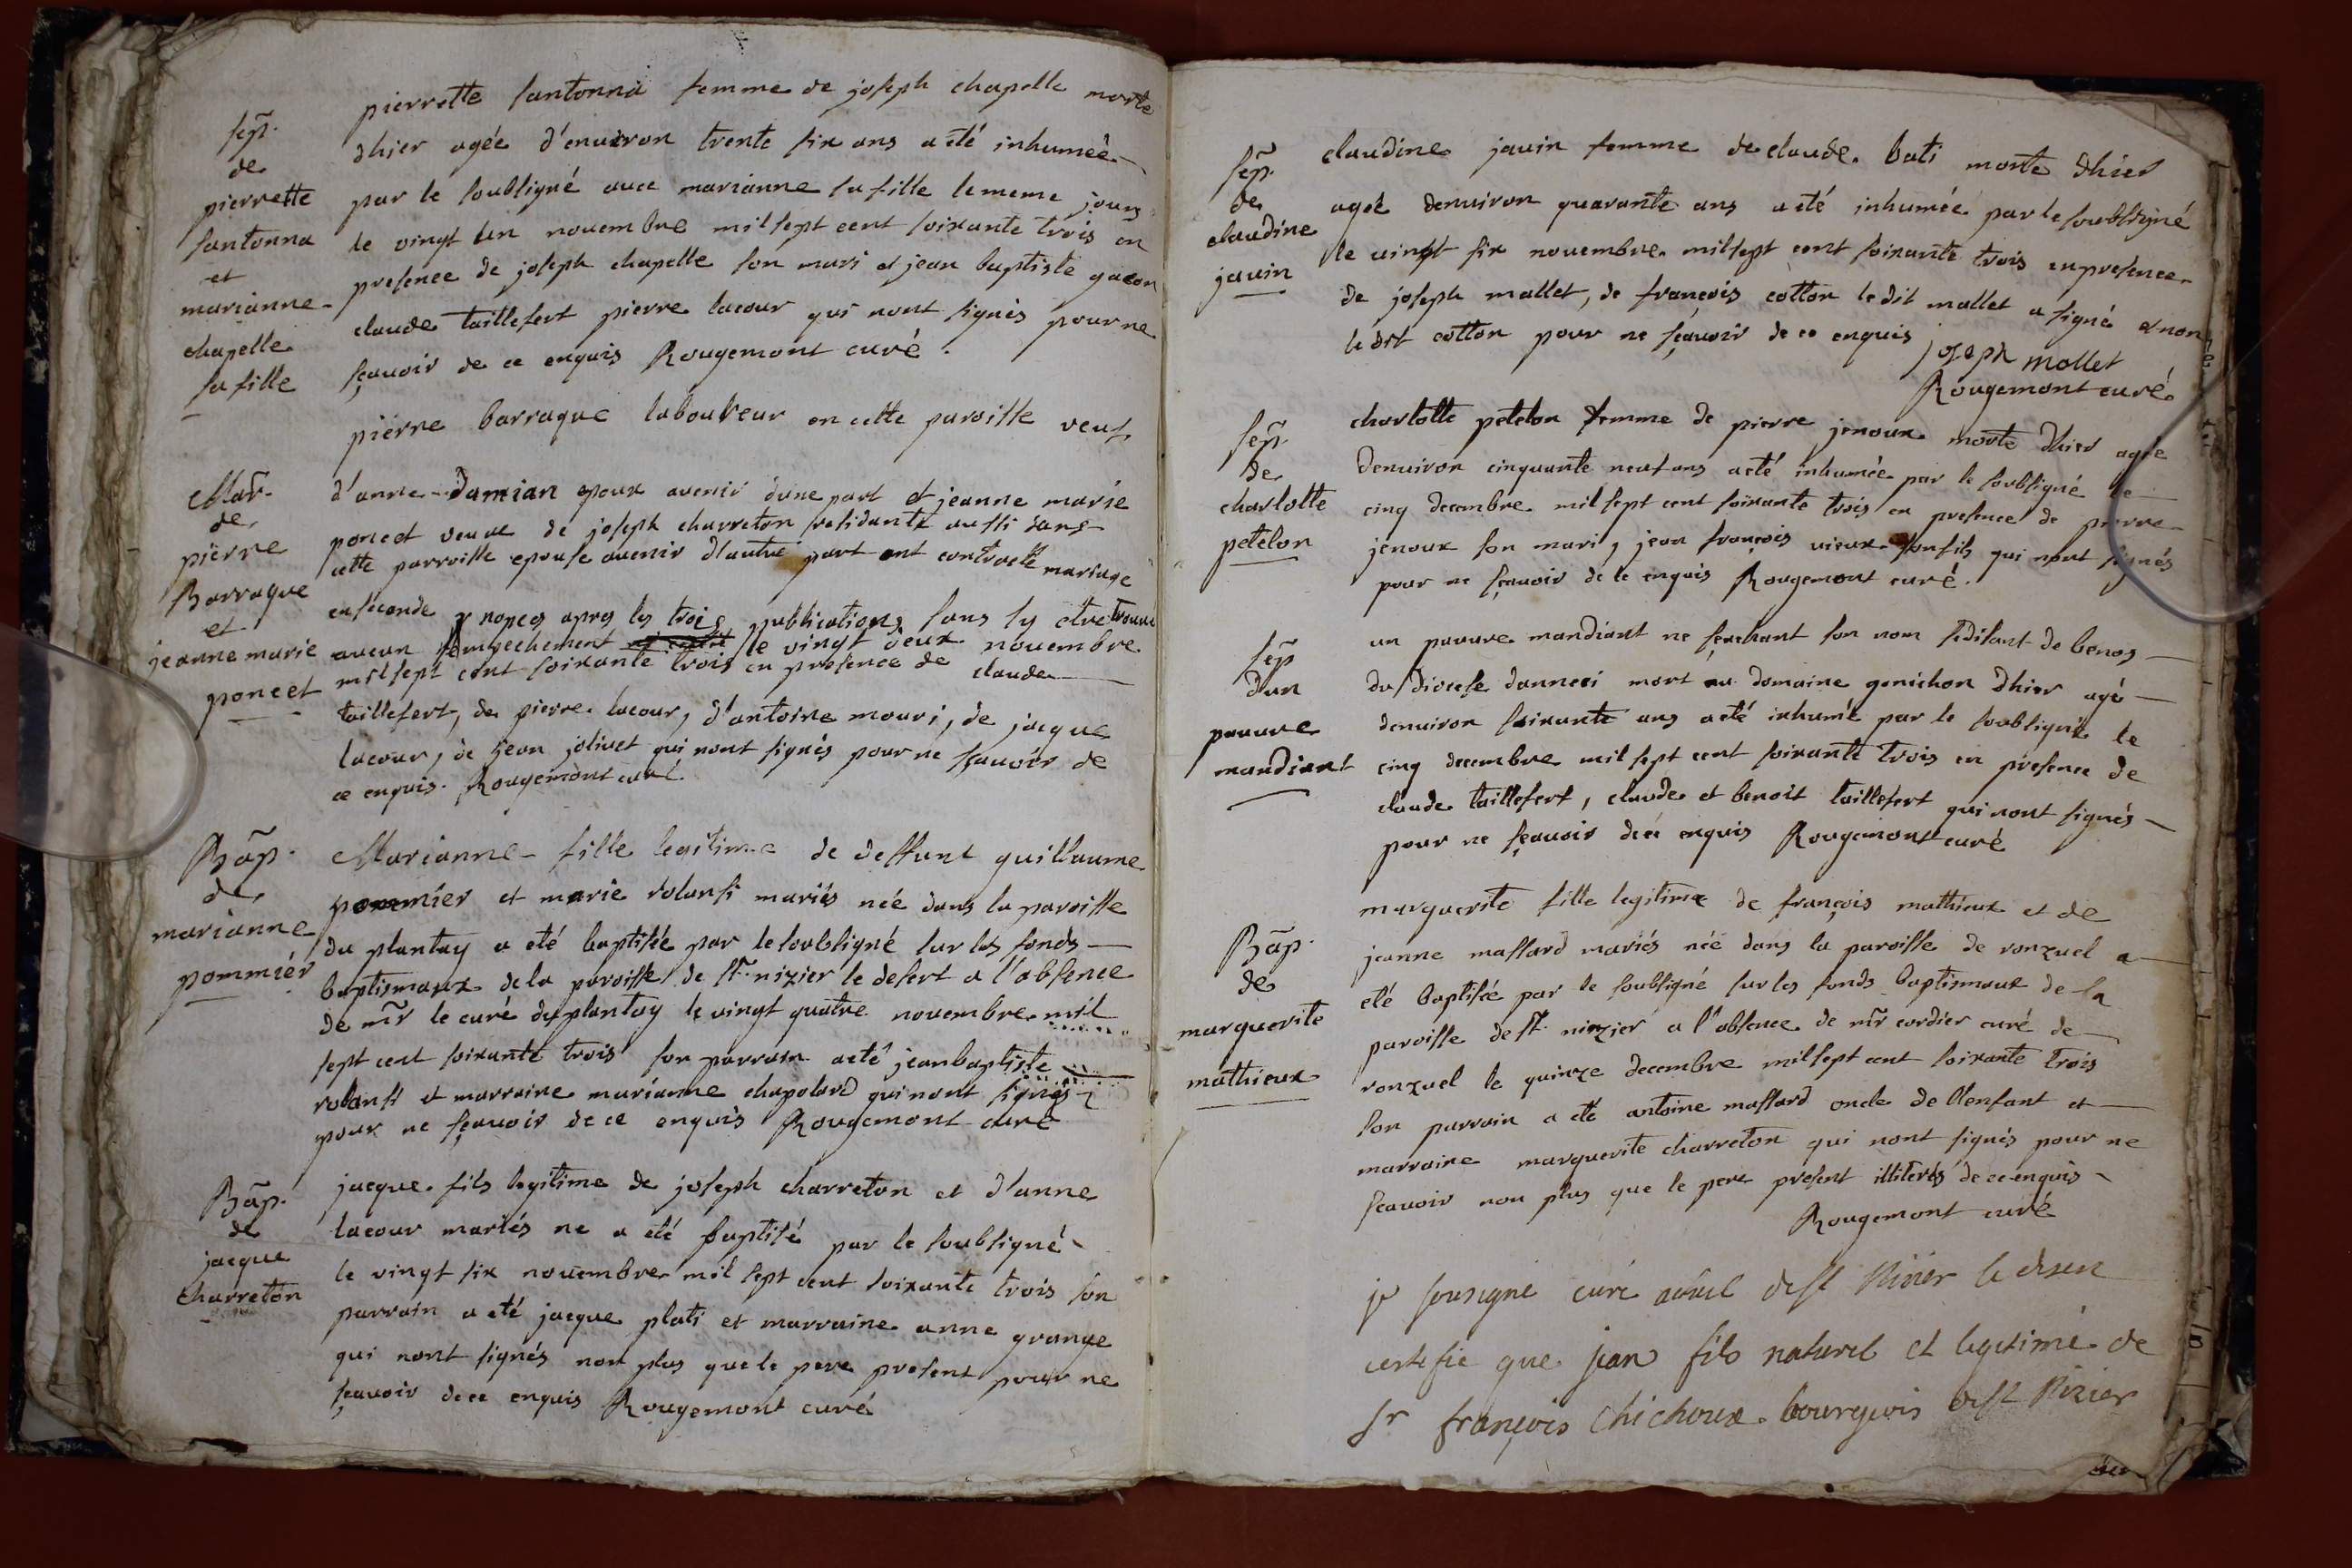 sep.
de
pierrette
santonna
et
marianne
chapelle
sa fille
pierrette santonna femme de joseph chapelle morte
dhier agée d'enuiron trente six ans a été inhumée
par le soubsigné auec marianne sa fille le meme jour
le vingt un nouembre mil sept cent soixante trois en
presence de joseph chapelle son mari et jean baptiste gacon
claude taillefert pierre lacour qui nont signés pour ne
sçauoir de ce enquis Rougemont curé.
Mar.
de
pierre
Barraque
et
jeanne marie
poncet
pierre barraque laboureur en cette paroisse veuf
d'anne damian epoux auenir dune part et jeanne marie
poncet veuue de joseph charreton residante aussi dans
cette parroisse epouse auenir d'autre part ont contracté mariage
en seconde nopces apres les trois publications sans sy etre trouué
aucun empechement le vingt deux nouembre
mil sept cent soixante trois en presence de claude
taillefert, de pierre lacour, d'antoine mouri, de jacque
lacour, de jean joliuet qui nont signés pour ne sçauoir de
ce enquis. Rougemont curé.
Bap.
de
marianne
pommier
Marianne fille legitime de deffunt guillaume
pommier et marie rolansi mariés née dans la paroisse
du plantay a été baptisée par le soubsigné sur les fonds
baptismaux de la paroisse de st. nizier le desert a l'absence
de mr le curé du plantay le vingt quatre nouembre mil
sept cent soixante trois son parrain a eté jean baptiste
rolansi et marraine marianne chapolard qui nont signés
pour ne sçauoir de ce enquis Rougemont curé
Bap.
de
jacque
charreton
jacque fils legitime de joseph charreton et d'anne
lacour mariés ne a eté baptisé par le soubsigné
le vingt six nouembre mil sept cent soixante trois son
parrain a eté jacque plati et marraine anne grange
qui nont signés non plus que le pere present pour ne
sçauoir de ce enquis Rougemont curé
sep.
de
claudine
jauin
claudine jauin femme de claude bati morte dhier
agée denuiron quarante ans a eté inhumée par le soubsigné
le uingt six nouembre mil sept cent soixante trois en presence
de joseph mallet, de françois cotton le dit mallet a signé et non
le dit cotton pour ne sçauoir de ce enquis
joseph mollet
Rougemont curé
sep.
de
charlotte
petelon
charlotte petelon femme de pierre jenoux morte dhier agée
denuiron cinquante neuf ans a eté inhumée par le soubsigné le
cinq decembre mil sept cent soixante trois en presence de pierre
jenoux son mari, jean françois uieux son fils qui nont signés
pour ne sçauoir de ce enquis Rougemont curé.
sep
dun
pauure
mandiant
un pauure mandiant ne sçachant son nom se disant de benos
du diocese danneci mort au domaine genichon dhier agé
denuiron soixante ans a eté inhumé par le soubsigné le
cinq decembre mil sept cent soixante trois en presence de
claude taillefert, claude et benoit taillefert qui nont signés
pour ne sçauoir de ce enquis Rougemont curé
Bap.
de
marguerite
mathieux
marguerite fille legitime de françois mathieux et de
jeanne massard mariés née dans la paroisse de ronzuel a
eté baptisée par le soubsigné sur les fonds baptismaux de la
paroisse de st. nizier a l'absence de mr cordier curé de
ronzuel le quinze decembre mil sept cent soixante trois
son parrain a eté antoine massard oncle de l'enfant et
marraine marguerite charreton qui nont signés pour ne
sçauoir non plus que le pere present illiterés de ce enquis
Rougemont curé
je sousigné curé de st Nizier le desert
certifie que jean fils naturel et legitime de
sr françois Chichoux bourgeois de st Nizier